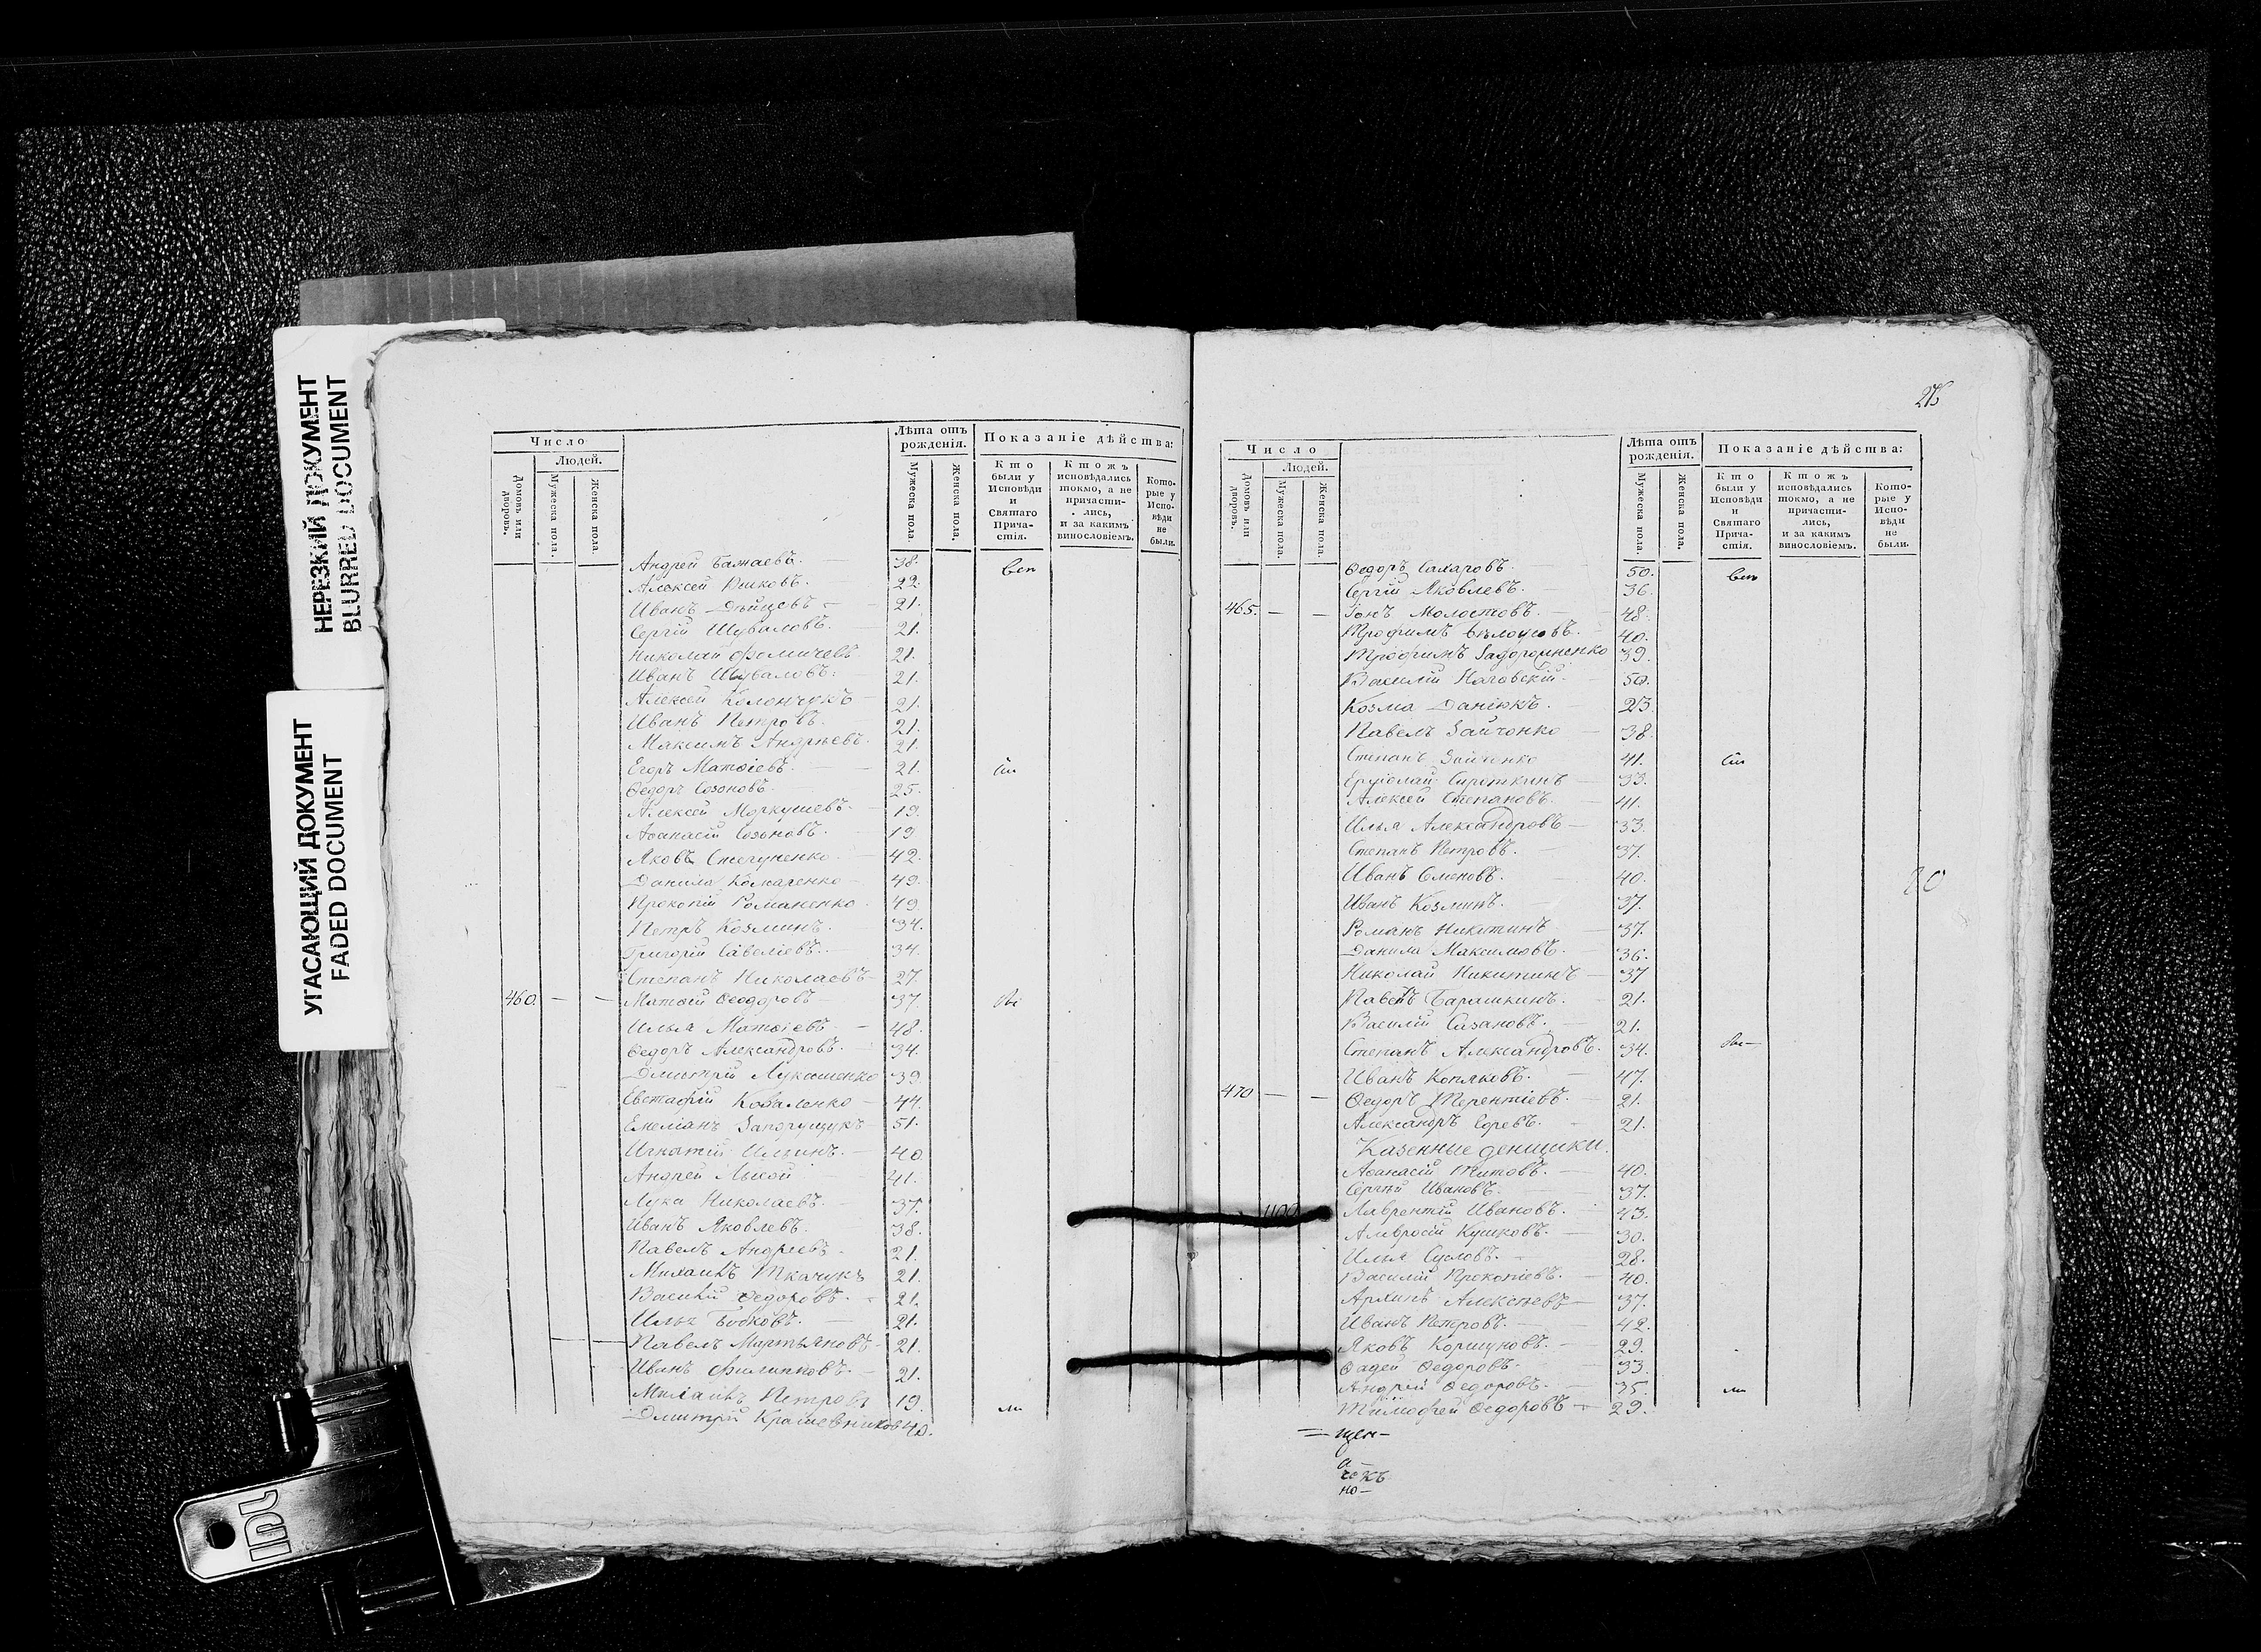 НЕРЕЗКИЙ ДОКУМЕНТ
BLURRED DOCUMENT
УГАСАЮЩИЙ ДОКУМЕНТ
FADED DOCUMENT
Число
Людей.
Домовъ или дворовъ.
Мужеска пола.
Женска пола.
Лѣта отъ рожденія.
Мужеска пола.
Женска пола.
Показаніе дѣйства:
Кто были у Исповѣди и Святаго Прича-стія.
Ктожъ исповѣдались токмо, а не причасти-лись, и за какимъ винословіемъ.
Кото-рые у Испо-вѣди не были.
Андрей 38.
Алексей 22.
Иванъ 21.
Сергій Шуваловъ. 21.
Николай Фомичевъ 21.
Иванъ Шуваловъ. 21.
Алексей 21.
Иванъ Петровъ. 21.
Максимъ Андреевъ. 21.
Егоръ Матвіевъ. 21.
Ѳедоръ Созоновъ. 25.
Алексей Моркушевъ. 19.
Аѳанасій Созоновъ. 19
Яковъ 42.
Данила Комаренко 49.
Прокопій Романенко 49.
Петръ Козминъ. 34.
Григорій Савеліевъ. 34.
Степанъ Николаевъ 27.
460. Матвій Ѳеодоровъ 37.
Илья Матвіевъ. 48.
Ѳедоръ Александровъ. 34.
Дмитрій Лукашенко 39.
Евстафій Коваленко 44.
Емеліанъ 51.
Игнатій Ильинъ. 40
Андрей Лысой 41.
Лука Николаевъ. 37.
Иванъ Яковлевъ. 38.
Павелъ Андреевъ. 21.
Михаилъ Ткачукъ 21.
Василій Ѳедоровъ. 21.
Илья Бобковъ. 21.
Павелъ Мартьяновъ 21.
Иванъ Филипповъ. 21.
Михаилъ Петровъ 19.
Дмитрій 40.
Число
Людей.
Домовъ или дворовъ.
Мужеска пола.
Женска пола.
Лѣта отъ рожденія.
Мужеска пола.
Женска пола.
Показаніе дѣйства:
Кто были у Исповѣди и Святаго Прича-стія.
Ктожъ исповѣдались токмо, а не причасти-лись, и за какимъ винословіемъ.
Кото-рые у Испо-вѣди не были.
Ѳедоръ Сахаровъ. 50.
Сергій Яковлевъ. 36.
465. Іонъ Молостовъ. 48.
Трофимъ Бѣлоусовъ. 40.
Трофимъ Задорожненко 39.
Василій 50.
Козма Данюкъ. 23.
Павелъ Зайченко 38.
Степанъ Зайченко 41.
Сироткинъ 33.
Алексей Степановъ. 41.
Илья Александровъ 33.
Степанъ Петровъ. 37.
Иванъ Семеновъ. 40.
Иванъ Козминъ. 37.
Романъ Никитинъ 37.
Данила Максимовъ. 36.
Николай Никитинъ 37
Павелъ Барашкинъ. 21.
Василій Сазановъ. 21.
Степанъ Александровъ. 34.
Иванъ Копяковъ. 47.
470 Ѳедоръ Терентіевъ. 21.
Александръ 21.
Казенные денщики.
Аѳанасій Титовъ. 40.
Сергѣй Ивановъ. 37.
Лаврентій Ивановъ. 43.
Амвросій Кушковъ. 30.
Илья Сусловъ. 28.
Василій Прокопіевъ. 40.
Архипъ Алексѣевъ 37.
Иванъ Петровъ. 42.
Яковъ Коршуновъ. 29.
Ѳадей Ѳедоровъ. 33.
Андрей Ѳедоровъ. 35.
Тимофей Ѳедоровъ 29.